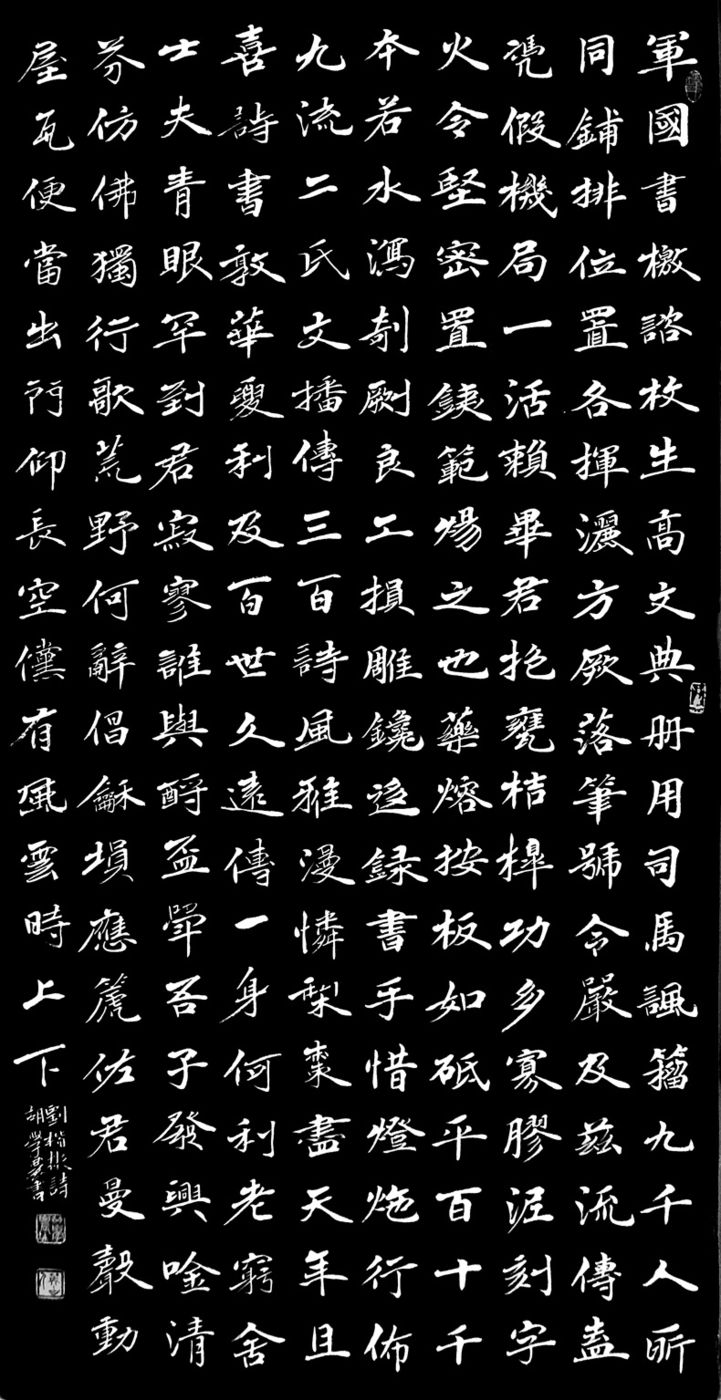 軍國書檄諮枚生高文典册用司馬諷籀九千人所
同鋪排位置各揮灑方厥落筆號令嚴及茲流傳盡
凴假機局一活賴畢君抱甕桔槹功多寡膠泥刻字
火令堅密置鐵範煬之也藥熔按板如砥平百十千
本若水瀉剞劂良工損雕鑱迻録書手惜燈灺行佈
九流二氏文播傳三百詩風雅漫憐梨棗盡天年且
喜詩書敦華夏利及百世久遠傳一身何利老窮舍
士夫青眼罕到君寂寥誰與酹盃斝吾子發興唫清
芬仿佛獨行歌荒野何辭倡龢塤應箎佑君曼聲動
屋瓦便當出門仰長空儻有風雲時上下
劉彬詩
胡學書